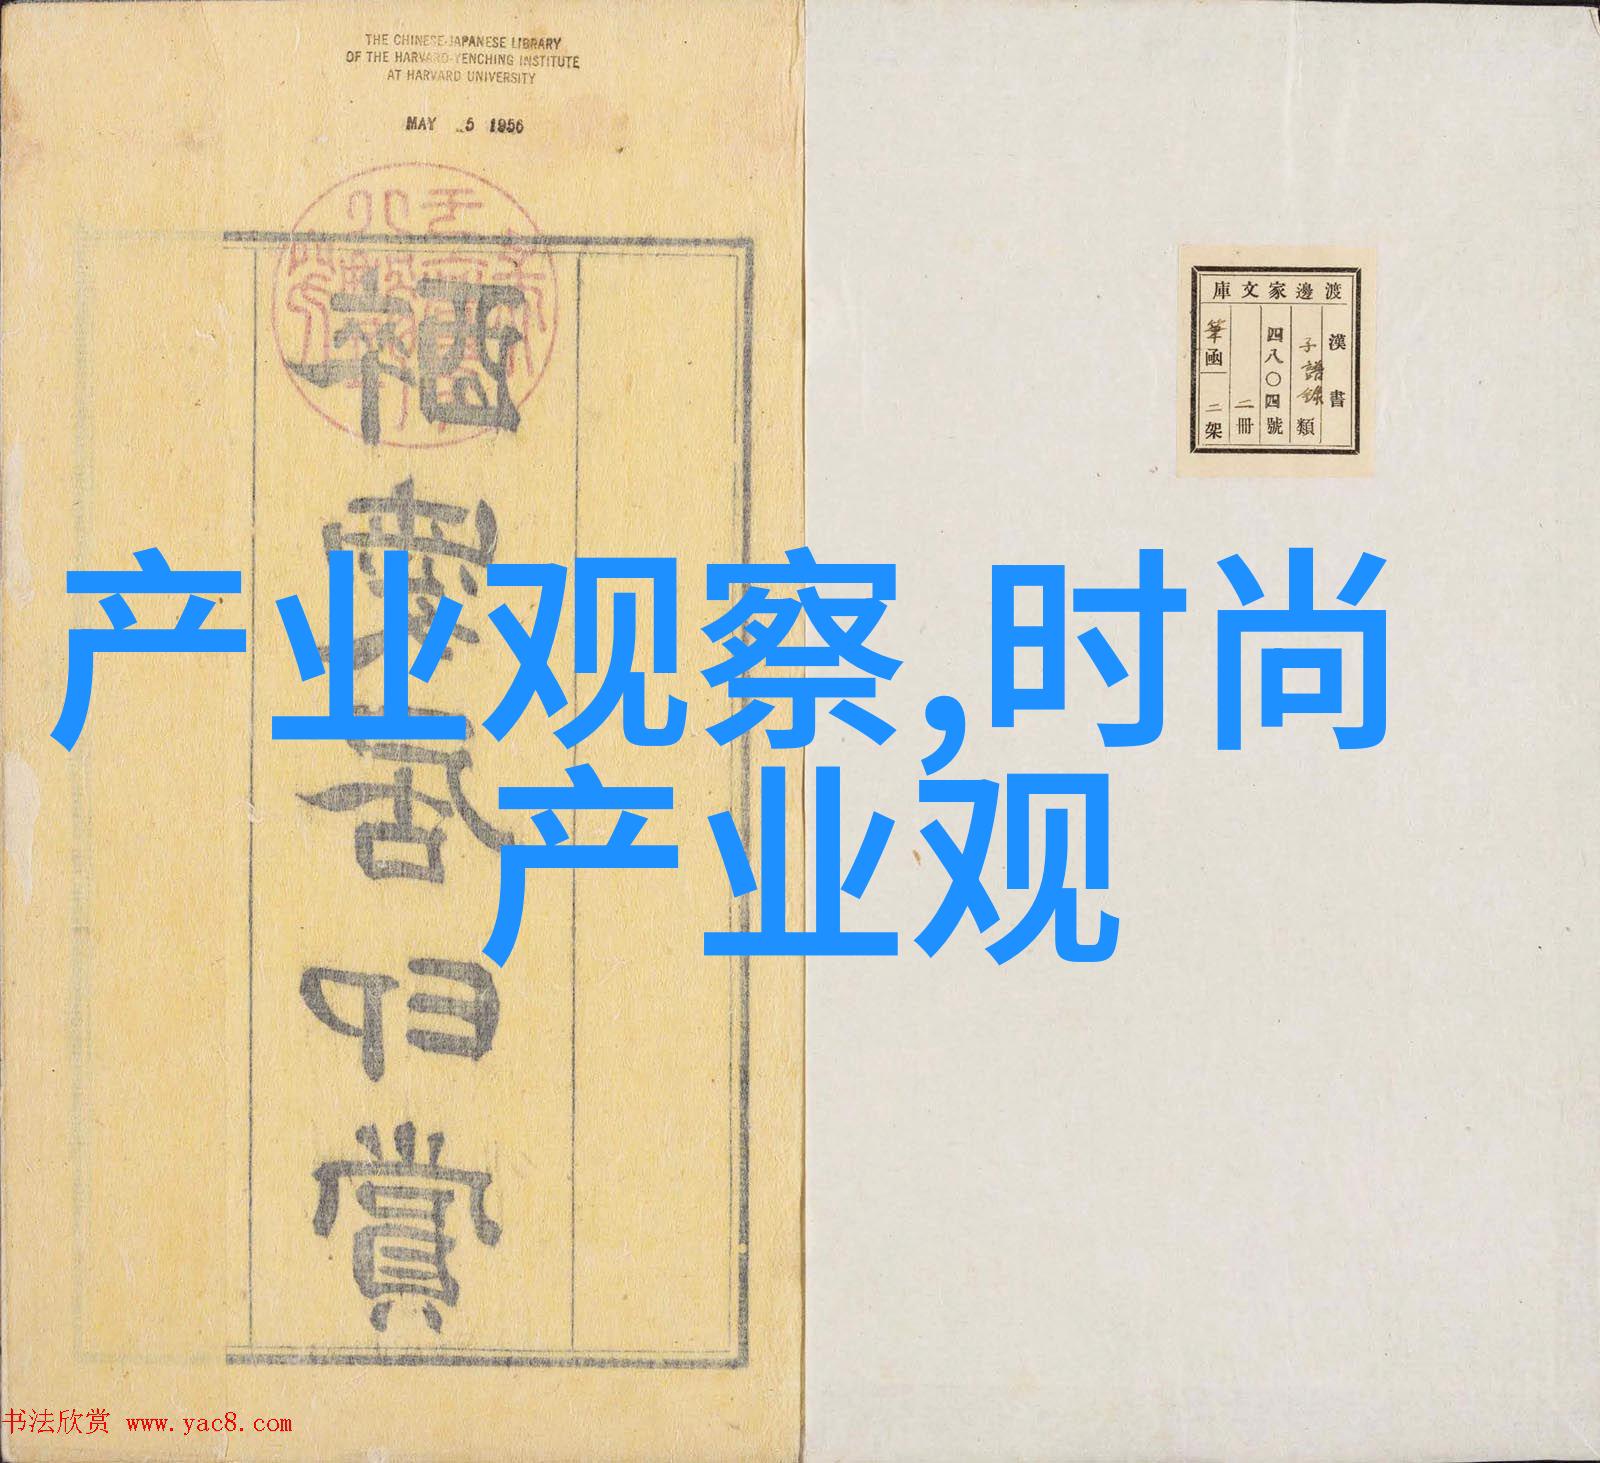 THE CHINESE-JAPANESE LIBRARY
OF THE HARVARD-YENCHING INSTITUTE
AT HARVARD UNIVERSITY
MAY 5 1956
渡邊家文庫
漢書
子譜錄類
四八〇四號
二冊
筆函二架
产业观察,时尚
产业观
书法欣赏 www.yac8.com